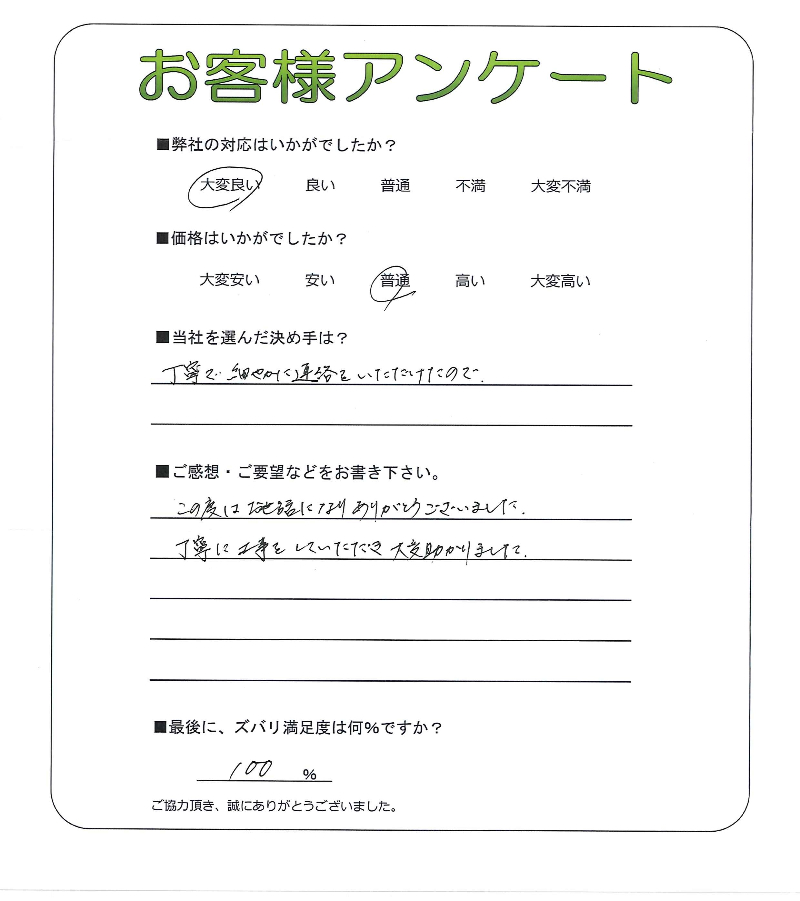 お客様アンケート
■弊社の対応はいかがでしたか？
大変良い 良い 普通 不満 大変不満
■価格はいかがでしたか？
大変安い 安い 普通 高い 大変高い
■当社を選んだ決め手は？
丁寧で細やかに連絡をいただけたので.
■ご感想・ご要望などをお書き下さい。
この度はお世話になりありがとうございました.
丁寧に工事をしていただき大変助かりました.
■最後に、ズバリ満足度は何％ですか？
100 ％
ご協力頂き、誠にありがとうございました。